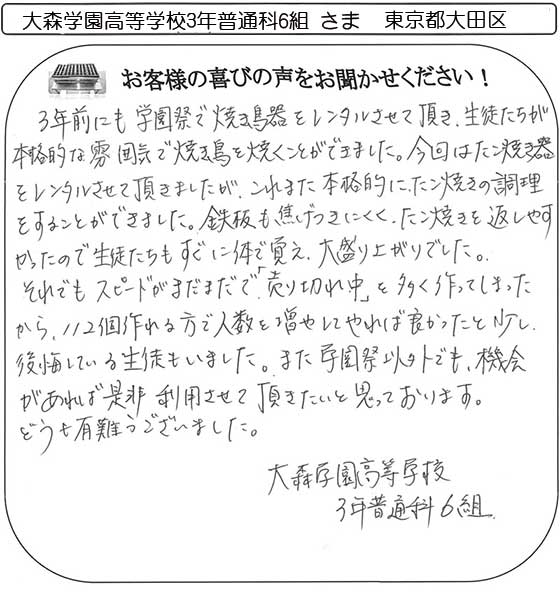 大森学園高等学校3年普通科6組 さま 東京都大田区
お客様の喜びの声をお聞かせください!
3年前にも学園祭で焼き鳥器をレンタルさせて頂き、生徒たちが
本格的な雰囲気で焼き鳥を焼くことができました。今回はたこ焼き器
をレンタルさせて頂きましたが、これまた本格的に、たこ焼きの調理
をすることができました。鉄板も焦げつきにくく、たこ焼きを返しやす
かったので生徒たちもすぐに体で覚え、大盛り上がりでした。
それでもスピードがまだまだで、「売り切れ中」を多く作ってしまった
から、112個作れる方で人数を増やしてやれば良かったと少し
後悔している生徒もいました。また学園祭以外でも、機会
があれば是非利用させて頂きたいと思っております。
どうも有難うございました。
大森学園高等学校
3年普通科6組